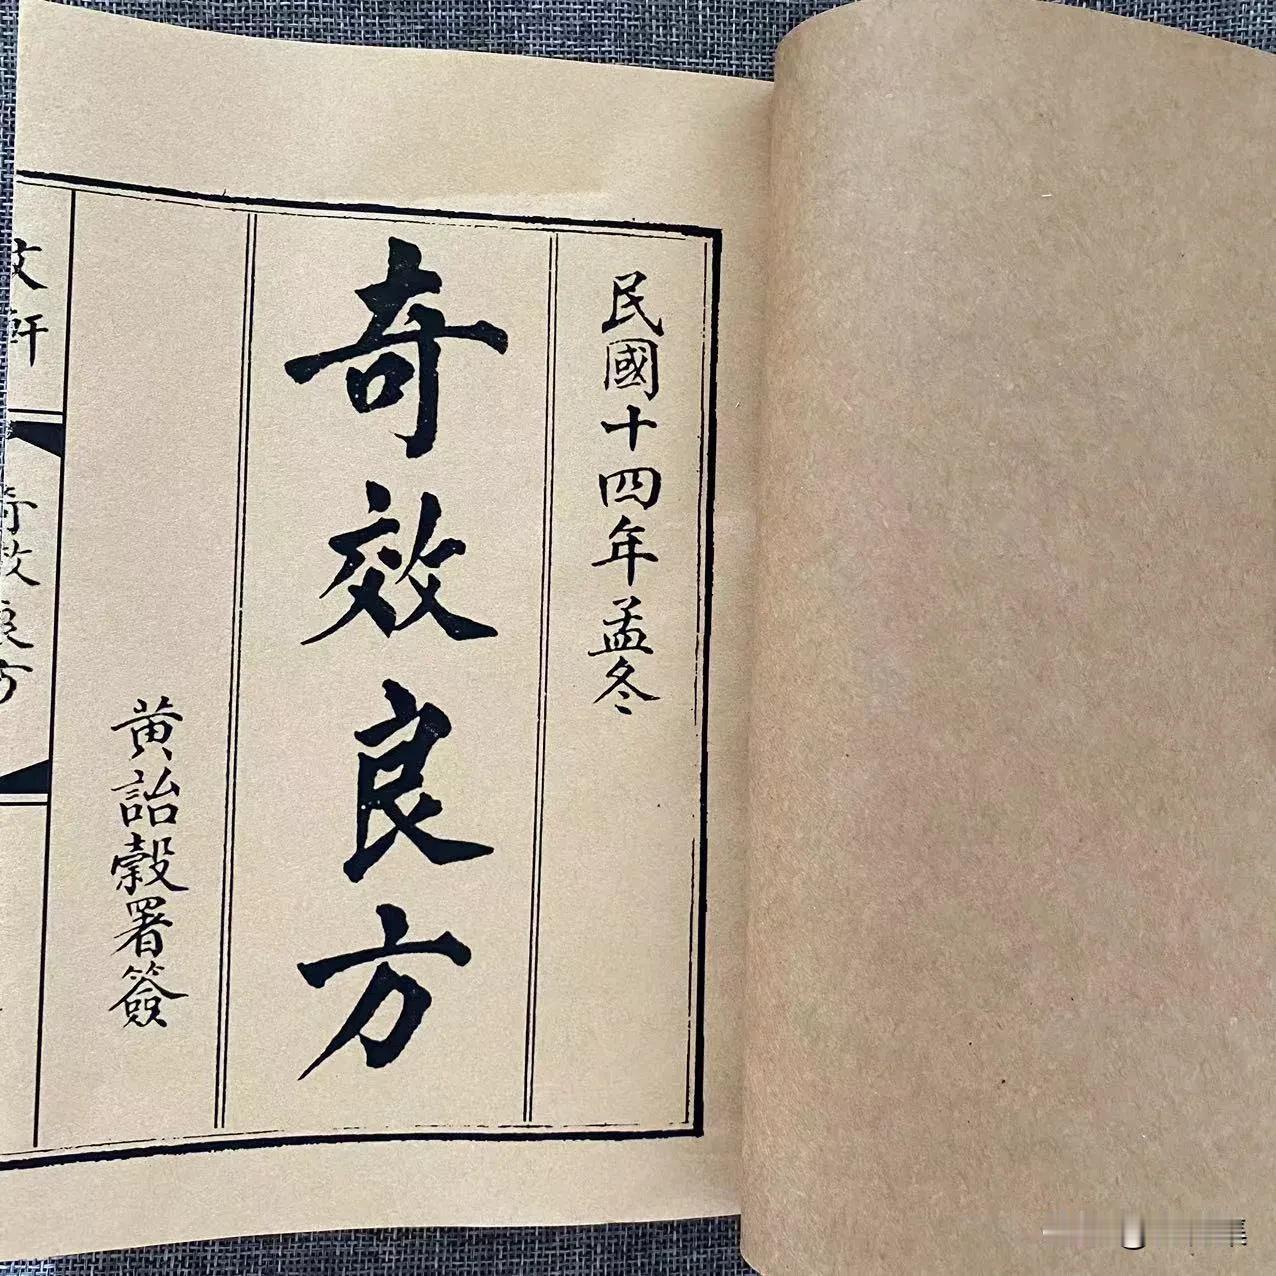 民國十四年孟冬
奇效良方
黄詒穀署簽
文軒
奇效良方